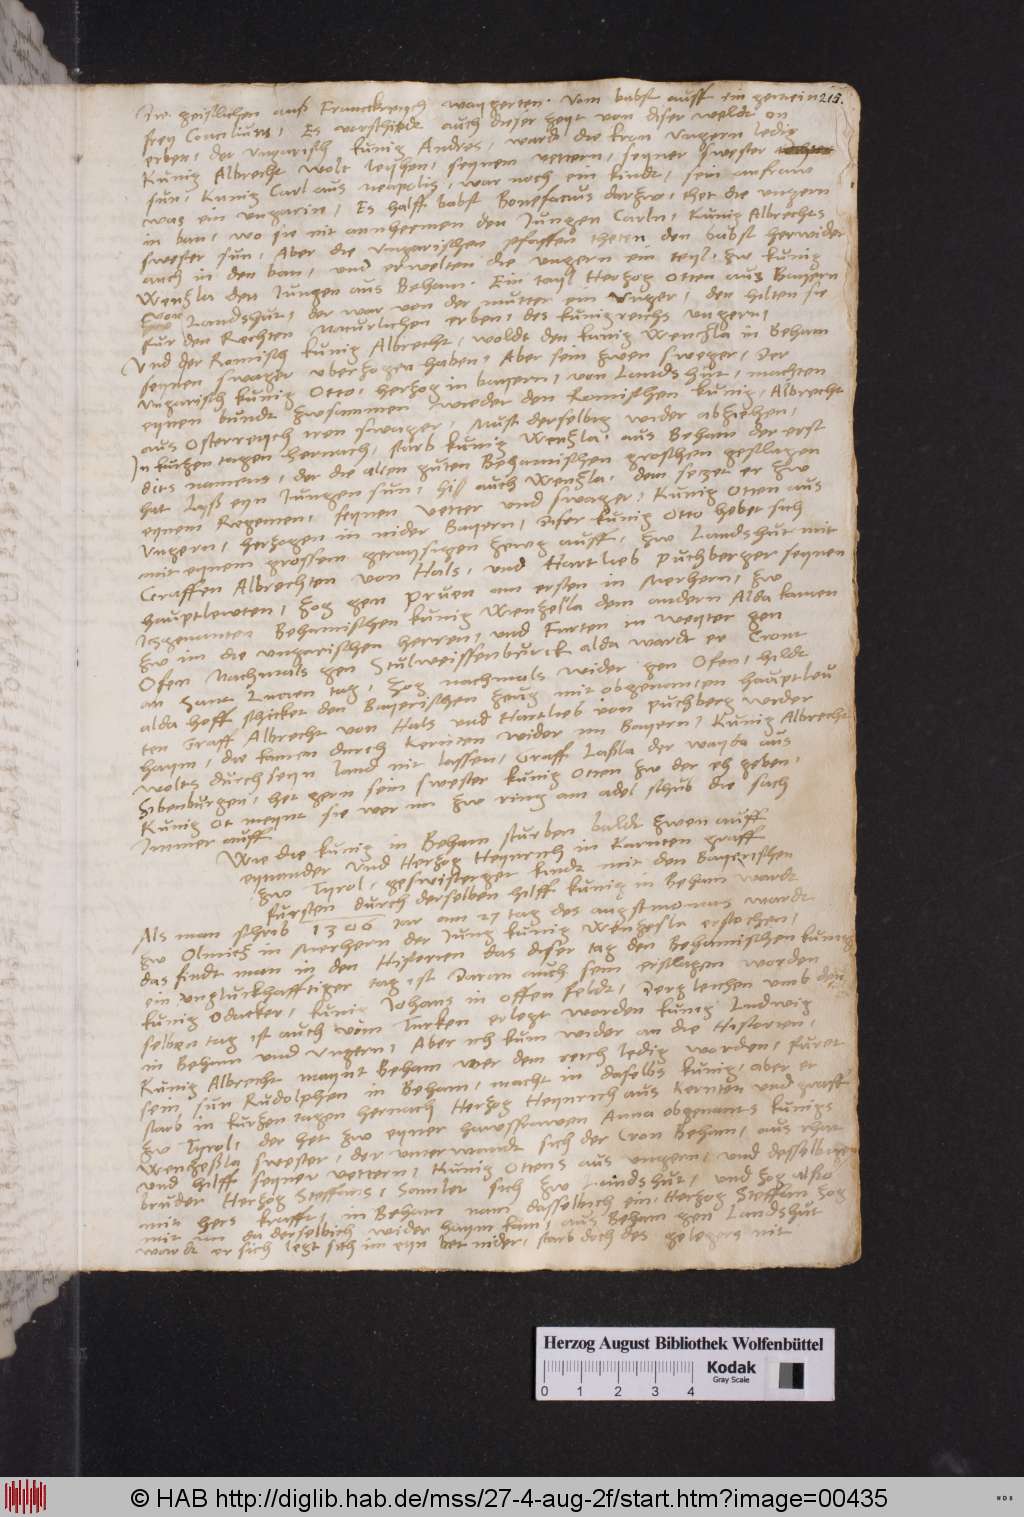 Die geistlichen auß Franckreych waygerten. vom babst auff ein gemein 215.
frey Concilium, Es verschiedt auch dieser zeyt von diser weldt on
erben, der ungarisch kunig Andres, wardt die kron ungern ledig
Kunig Albrecht wolt leyhen, seynem vettern, seyner swester
sun, Kunig Carl aus neapolis, war noch ein kindt, sein anfraw
was ein ungarin, Es halff babst Bonefacius darzw, thet die ungern
in ban, wo sie nit annhemen den Jungen Carln, Kunig Albrechts
swester sun, Aber die ungarischen pfaffen theten den babst herwider
auch in den ban, und erwelten die ungern ein teyl, zw kunig
Wentzla den Jungen aus Beham. Ein tayl Hertzog Otten aus Bayern
von Landshut, der war von der mutter ein unger, den hilten sie
fur den Rechten Naturlichen erben, des kunigreichs ungern,
Und der Romisch kunig Albrecht, woldt den kunig Wenchla in Beham
seynen swager uberzogen haben, Aber sein zwen sweger, Der
ungarisch kunig Otto, hertzog in bayern, von Landshut, machten
eynen bundt zwsammen wieder den Romischen kunig, Albrecht
aus Osterreych iren swager, Must derselbig wider abziehen,
In kurtzen tagen hernach, starb kunig Wentzla, aus Beham der erst
dits namens, der die alten guten Behamischen groschen geslagen
hat Lyß eyn Jungen sun, hiß auch Wentzla, dem setzet er zw
eynem Regemen, seynen vetter und swager, Kunig Otten aus
Ungern, hertzogen in nider Bayern, Diser kunig Otto hebet sich
mit eynem grossem geraysigen zewg auff, zw Landshut mit
Graffen Albrechten von Hals, und Hartlieb Puchberger seynen
hauptlewten, zog gen Pruen am ersten in Merhern, zw
Itzgenanten Behamischen kunig Wentzesla dem andern Alda kamen
zw im die ungarischen herren, und Furten in weyter gen
Ofen Nachmals gen Stulweissenburck alda wardt er Cront
an Sant tag, zog nachmals wider gen Ofen, hildt
alda hoff schicket den Bayerischen zeug mit obgenanten hauptleu
ten Graff Albrecht von Hals und Hartlieb von puchberg wider
haym, die kamen durch Kernten wider im Bayern, Kunig Albrecht
wolts durch seyn land nit lassen, Graff Laßla der wayda aus
Sibenburgen, het gern sein swester kunig Otten zw der eh geben,
Kunig Ot meynt sie wer im zw ring am adel schub die sach
Immer auff
Wie die kunig in Beham sturben baldt zwen auff
eynander und Hertzog Heynrich in Karnten graff
zw Tyrol, geswisterger kindt mit den Bayrischen
fursten durch derselben hilff kunig in Beham wardt
Als man schrib 1306 Jar am 27 tag des augstmonats wardt
zw Olmutz in Merhern der Jung kunig Wentzesla erstochen,
das findt man in den Historien das diser tag den Behamischen kunigen
ein ungluckhafftiger tag ist Daran auch sein erslagen worden
kunig Odacker, kunig Johans in offen feldt, Dergleichen umb den
selben tag ist auch vom Turken erlegt worden kunig Ludwig
in Beham und Ungern, Aber ich kum wider an die Historien,
Kunig Albrecht maynt Beham wer dem reich ledig worden, furet
sein sun Rudolphen in Beham, macht in daselbs kunig, aber er
starb in kurtzen tagen hernach Hertzog Heynrich aus Kernten und graff
zw Tyrol, der het zw eyner hawsfrawen Anna obgenants kunigs
Wenczeßla swester, der unterwandt sich der Cron Beham, aus rhat
und hilff seyner vettern, Kunig Ottens aus ungern, und desselbigen
bruder Hertzog Steffans, Samlet sich zw Landshut, und zog also
mit hers krafft, in Beham nam dasselbich ein, Hertzog Steffan zog
mit im da derselbich wider haym kam, aus Beham gen Landshut
wardt er sich legt sich im eyn bet nider, starb doch des gelegers nit
Herzog August Bibliothek Wolfenbüttel
0 1 2 3 4
Kodak
Gray Scale
© HAB http://diglib.hab.de/mss/27-4-aug-2f/start.htm?image=00435